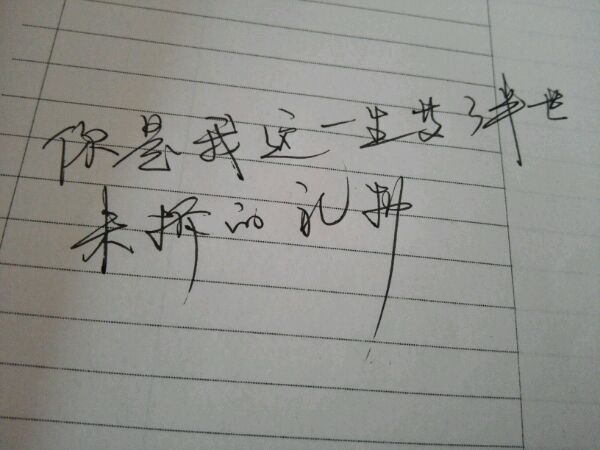 你是我这一生等了半世
未拆的礼物